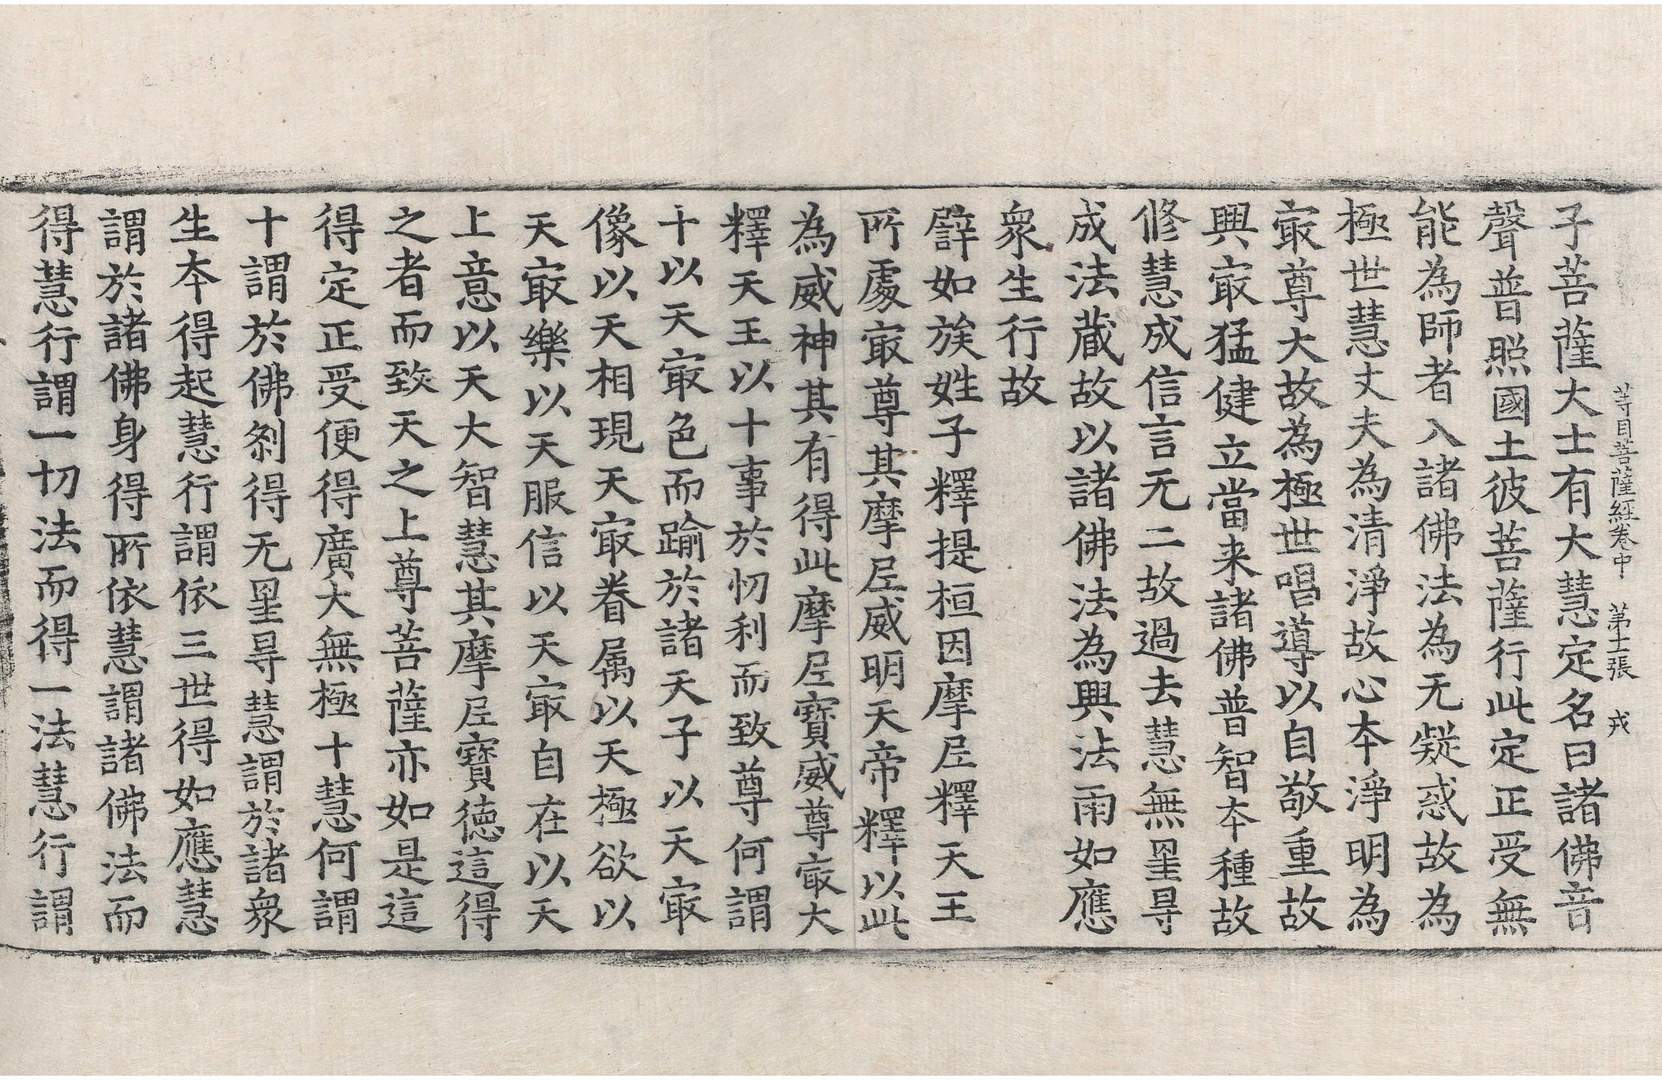 等目菩薩經卷中 第十二張 戎
子菩薩大士有大慧定名曰諸佛音
聲普照國土彼菩薩行此定正受無
能為師者入諸佛法為无疑惑故為
極世慧丈夫為清淨故心本淨明為
冣尊大故為極世唱導以自敬重故
興冣猛健立當来諸佛普智本種故
修慧成信言无二故過去慧無罣㝵
成法藏故以諸佛法為興法雨如應
衆生行故
譬如族姓子釋提桓因摩尼釋天王
所處冣尊其摩尼威明天帝釋以此
為威神其有得此摩尼寶威尊冣大
釋天王以十事於忉利而致尊何謂
十以天冣色而踰於諸天子以天冣
像以天相現天冣眷属以天極欲以
天冣樂以天服信以天冣自在以天
上意以天大智慧其摩尼寶德這得
之者而致天之上尊菩薩亦如是這
得定正受便得廣大無極十慧何謂
十謂於佛刹得无罣㝵慧謂於諸衆
生本得起慧行謂依三世得如應慧
謂於諸佛身得所依慧謂諸佛法而
得慧行謂一切法而得一法慧行謂